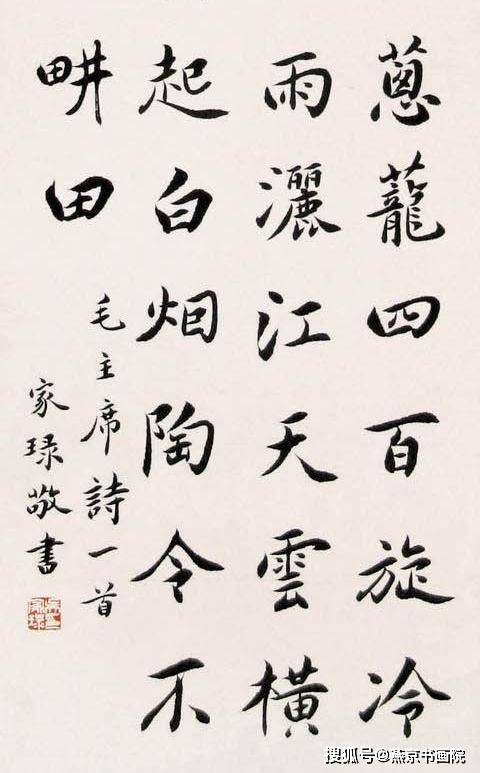 蔥蘢四百旋冷
雨灑江天雲橫
起白烟陶令不
畊田
毛主席詩一首
家琭敬書
搜狐号@燕京书画院